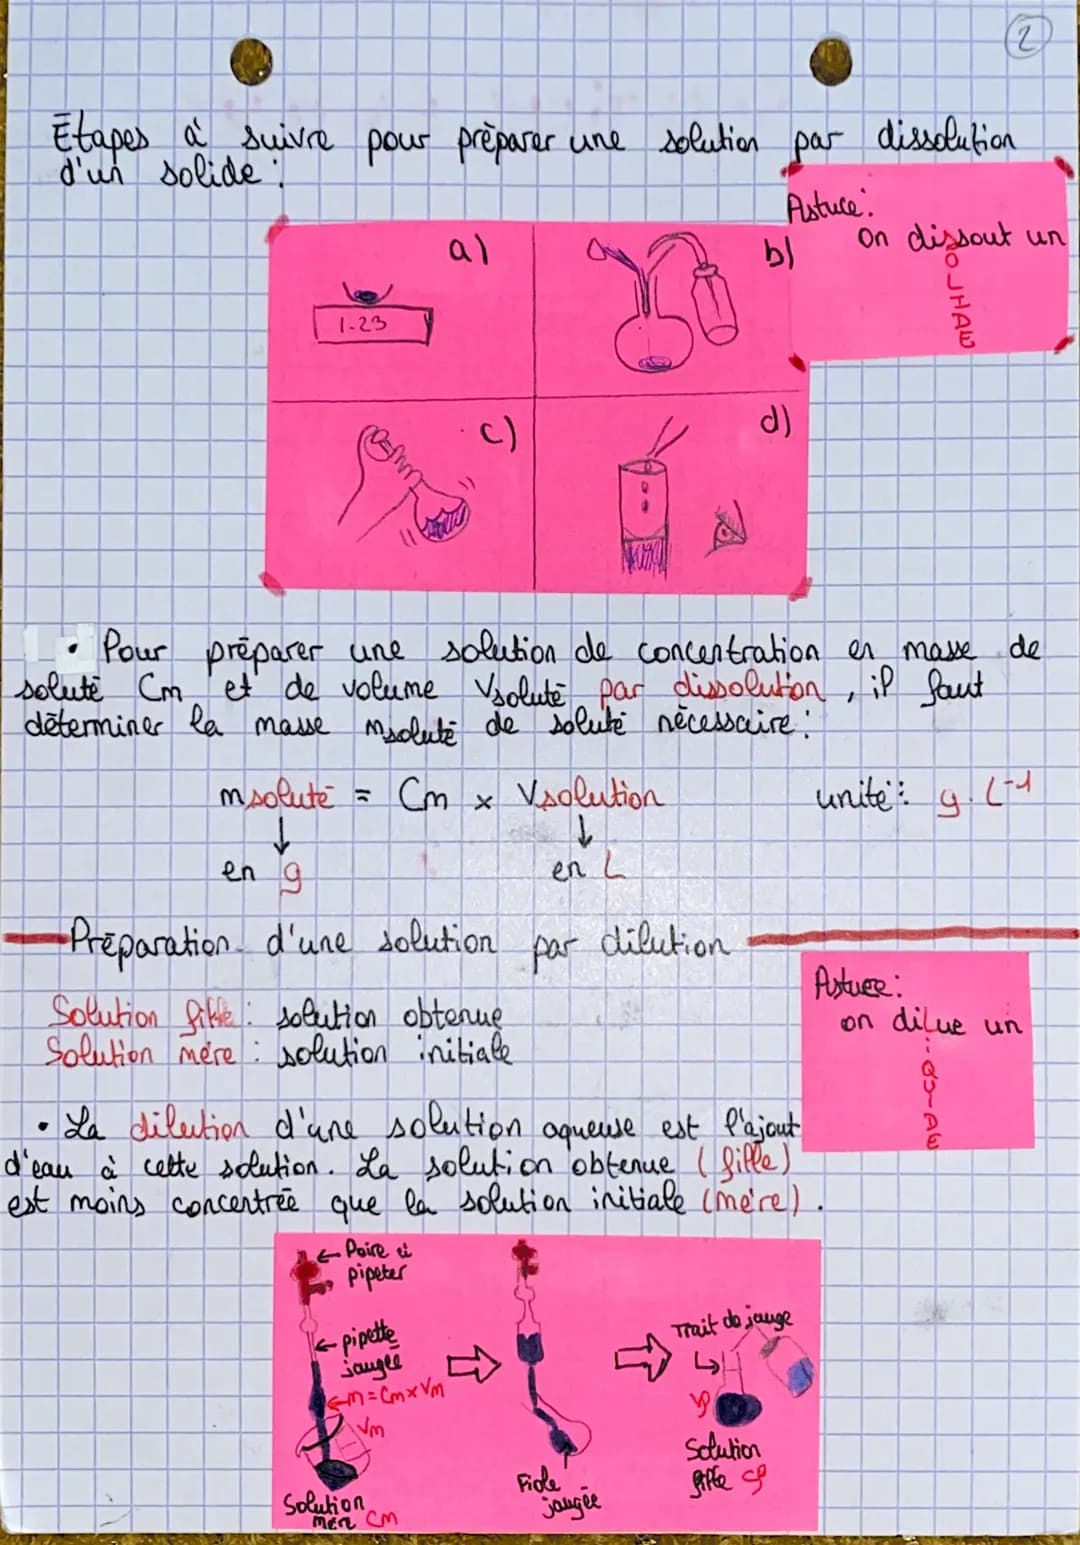 2
Etapes à suivre pour préparer une solution par dissolution
d'un solide :
Astuce :
on dissout un
SOLIDE
a)
1.23
b)
c)
d)
• Pour préparer une solution de concentration en masse de
soluté Cm et de volume Vsoluté par dissolution, il faut
déterminer la masse msoluté de soluté nécessaire :
msoluté = Cm x Vsolution unité : g.L-1
↓ ↓
en g en L
Préparation d'une solution par dilution
Solution fille : solution obtenue
Solution mère : solution initiale
Astuce :
on dilue un
LiQUiDE
• La dilution d'une solution aqueuse est l'ajout
d'eau à cette solution. La solution obtenue (fille)
est moins concentrée que la solution initiale (mère).
← Poire à
pipeter
← pipette
jaugée
← m = Cm x Vm
Vm
Solution
mère Cm
Fiole
jaugée
Trait de jauge
Vf
Solution
fille Cf